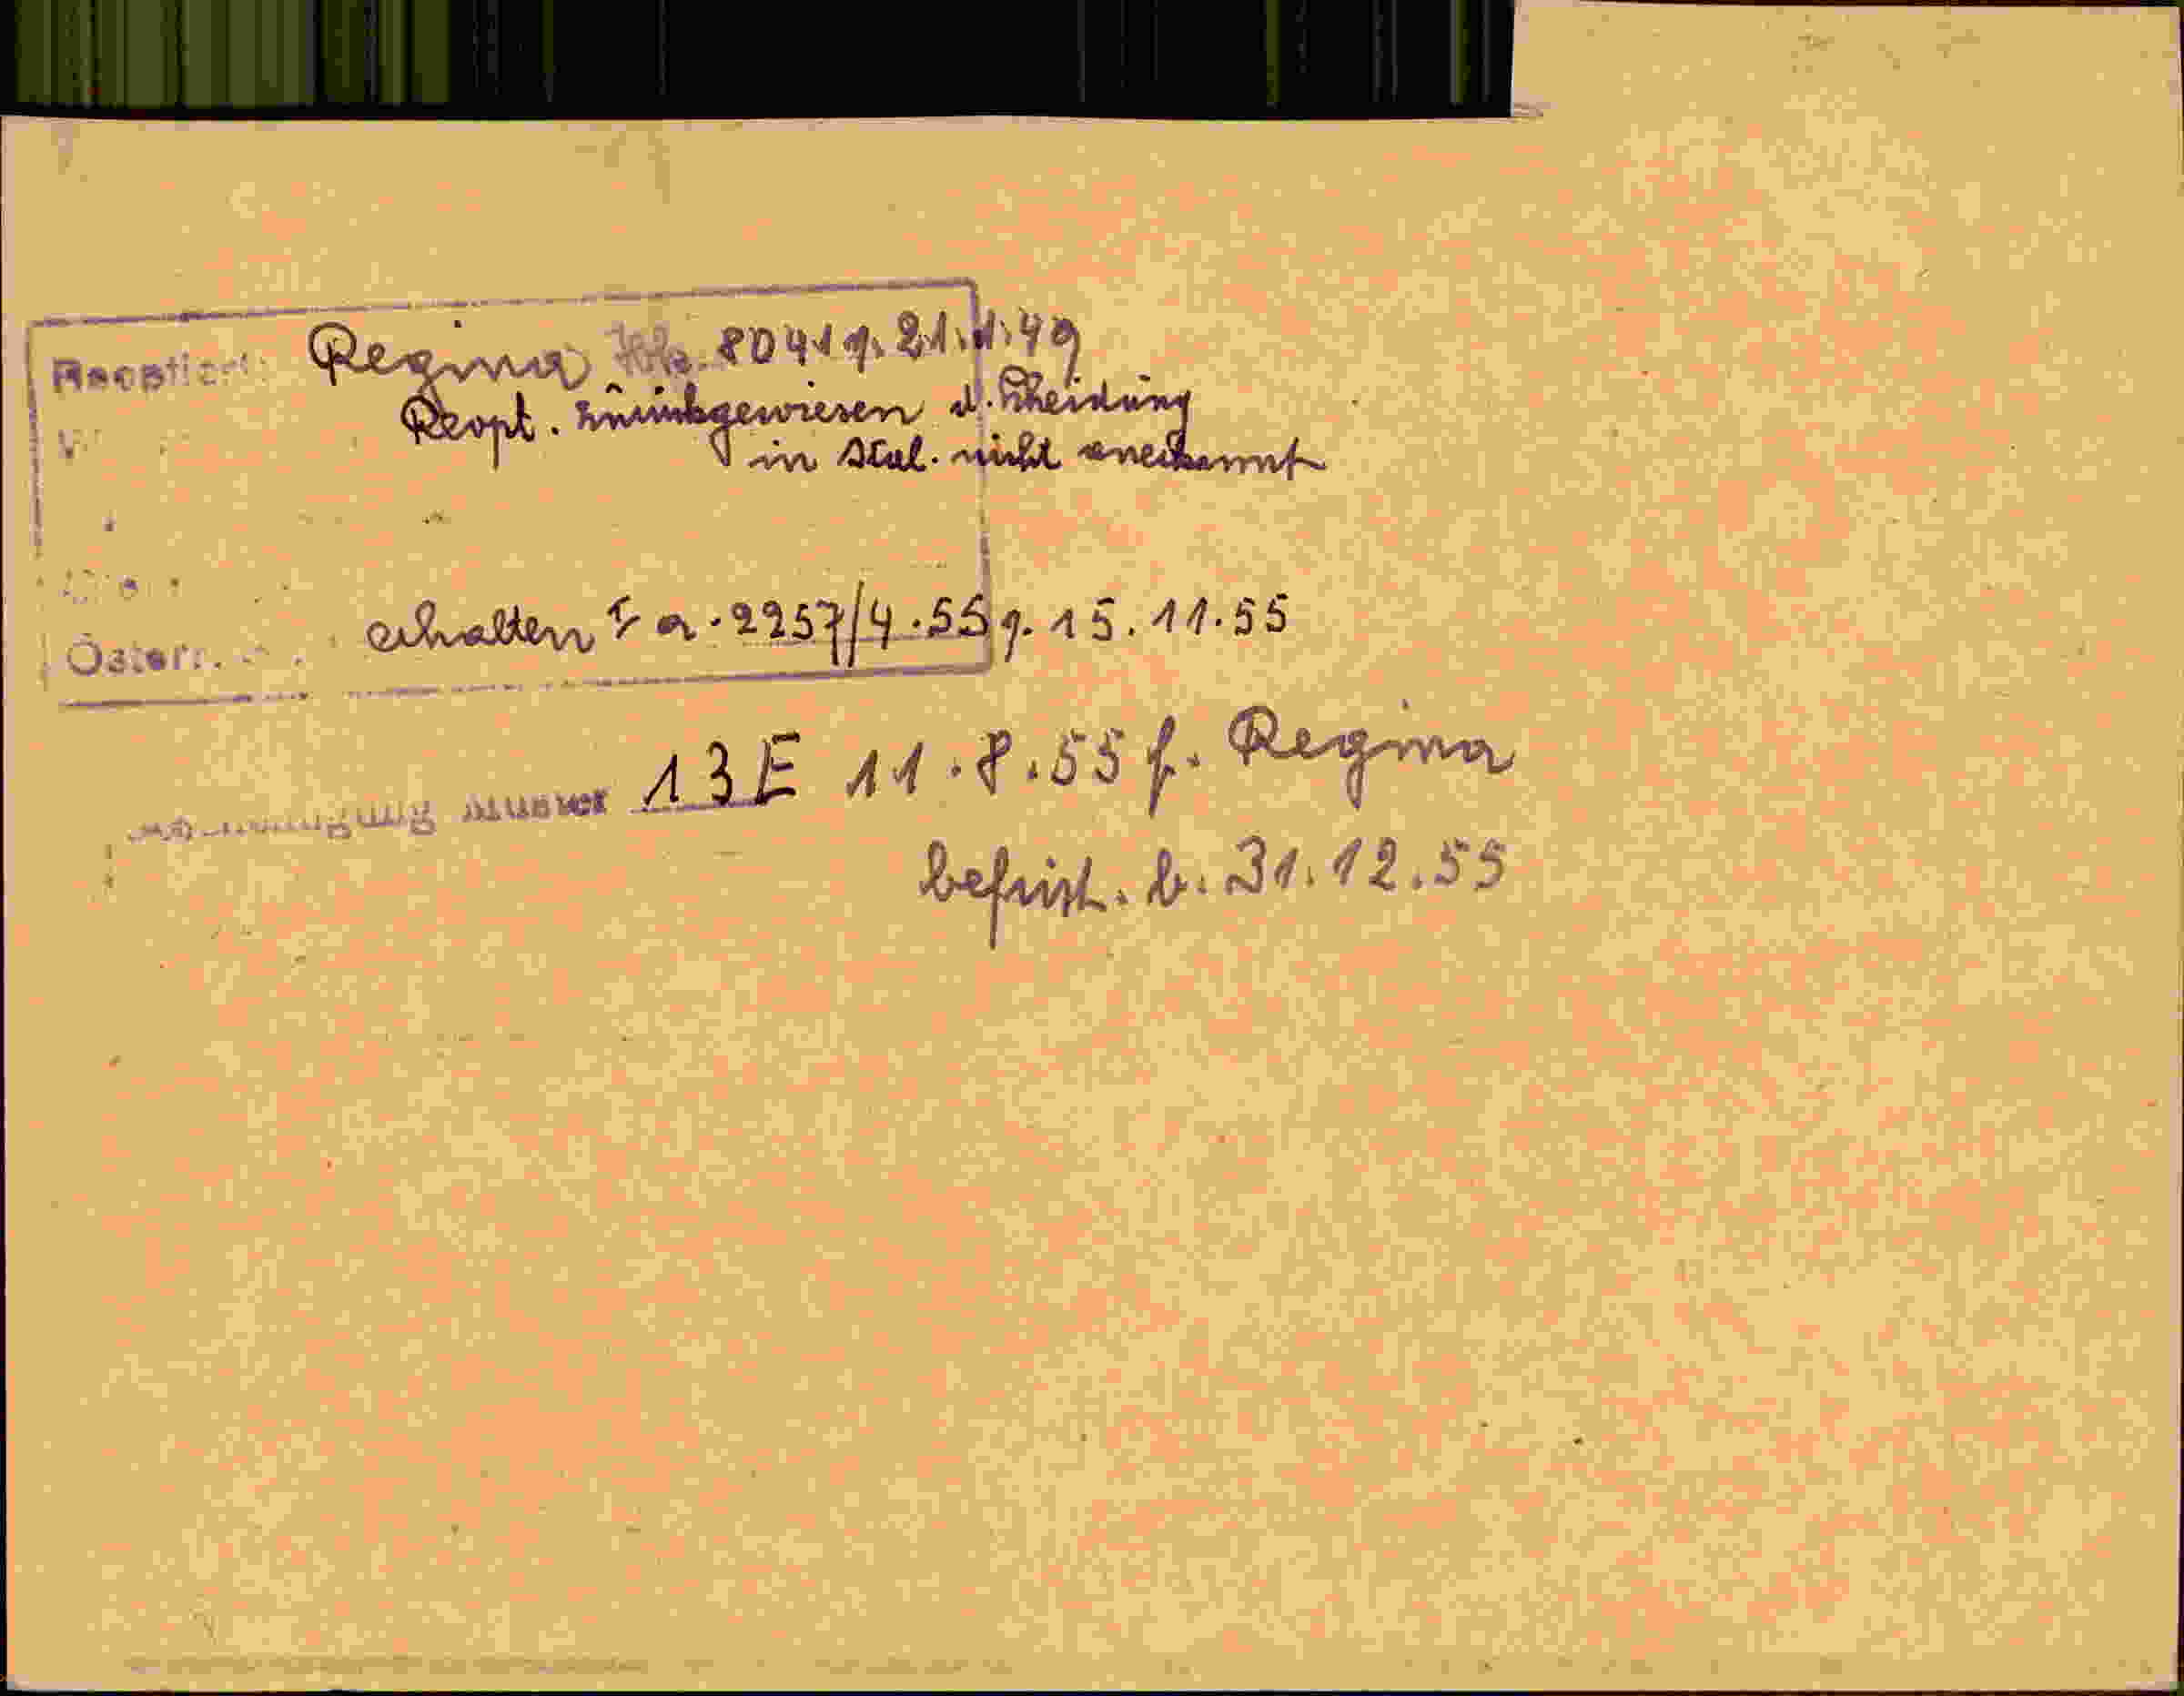 Reoptiert: Regina 8041 v. 21.1.49
Reopt. zurückgewiesen d. Scheidung
in Ital. nicht anerkannt
Österr. erhalten I a - 2257/4.55 v. 15.11.55
13E 11.8.55 f. Regina
befrist. b. 31.12.55